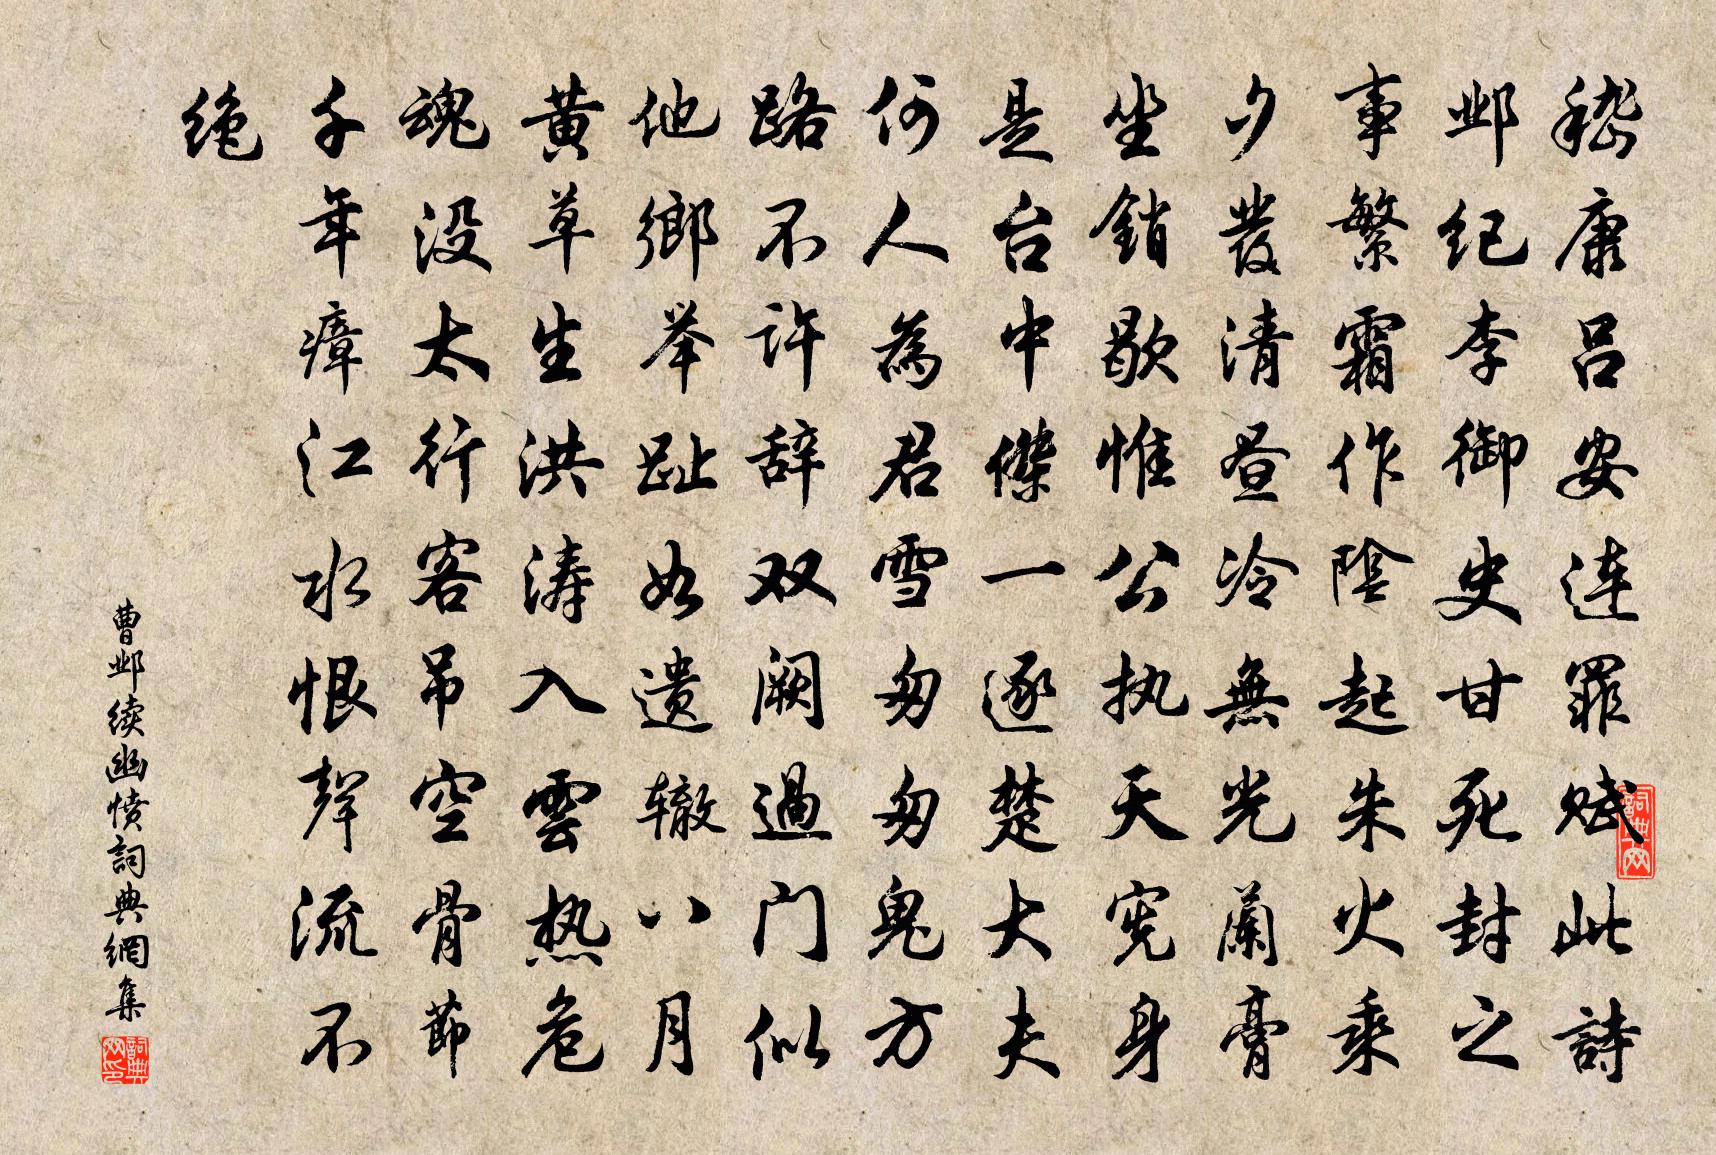 嵇康吕安连罪赋此詩
邺纪李御史甘死封之
事繁霜作陰起朱火乘
夕發清昼冷無光蘭膏
坐銷歇惟公执天宪身
是台中傑一逐楚大夫
何人為君雪匆匆鬼方
路不许辞双阙過门似
他鄉举趾如遗辙八月
黄草生洪涛入雲热危
魂没太行客吊空骨节
千年瘴江水恨聲流不
绝
曹邺续幽愤詞典網集
詞典网
詞典网印